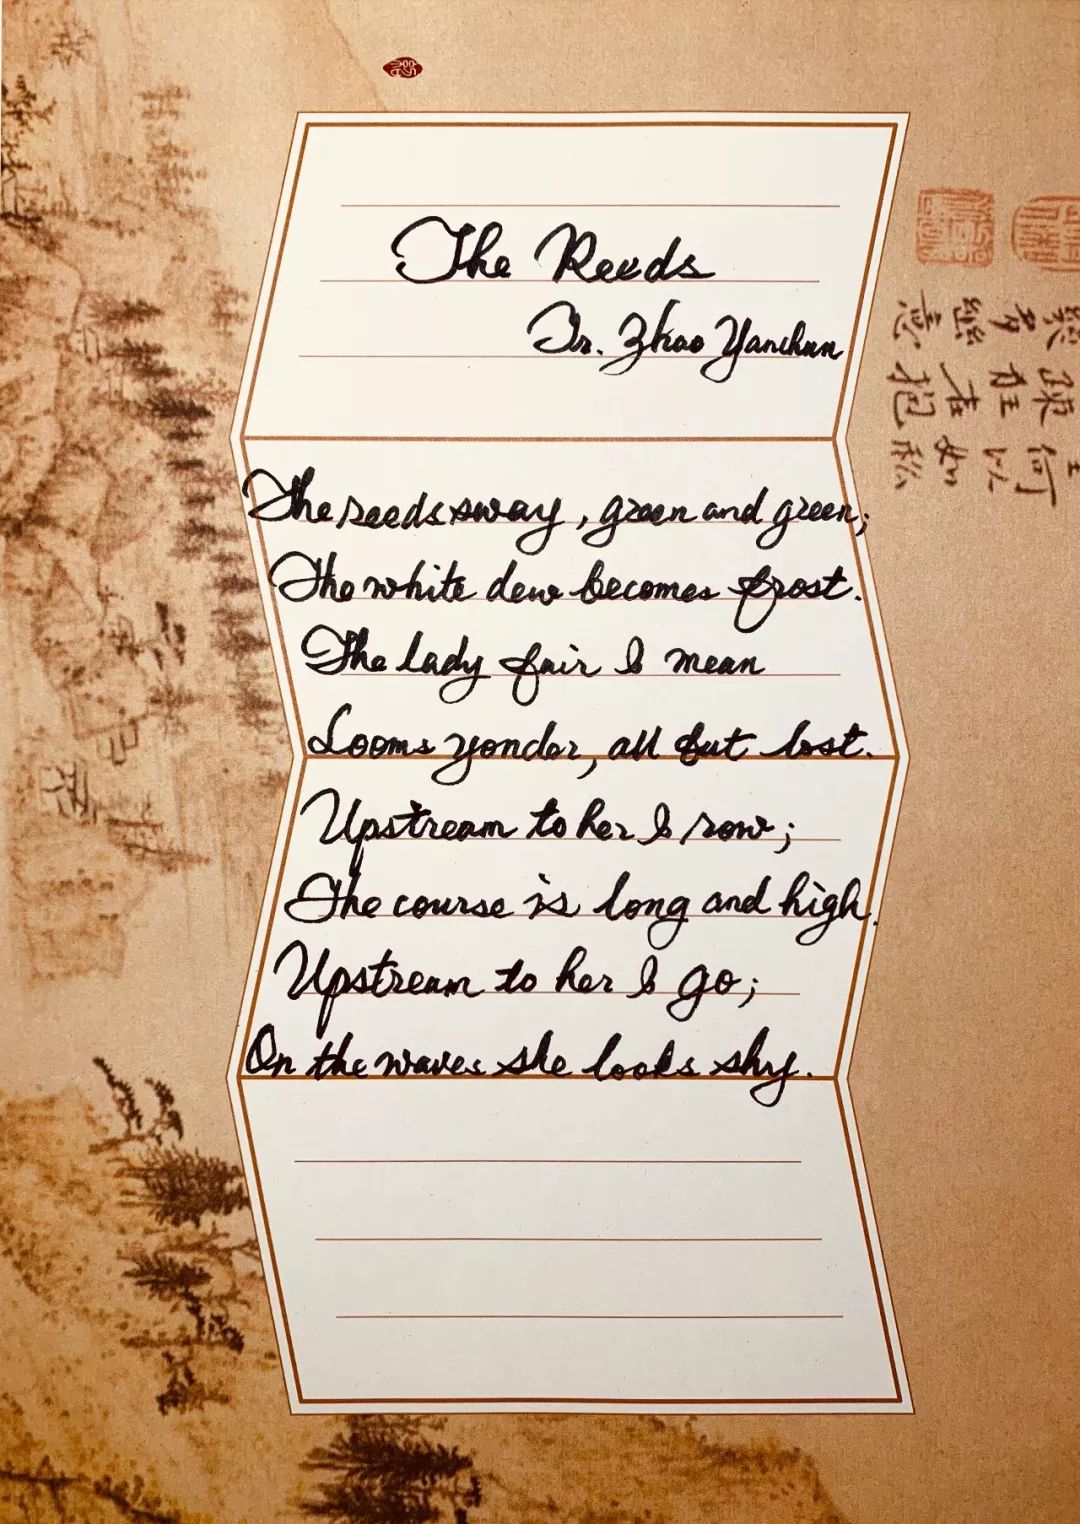 The Reeds
Tr. Zhao Yanchun
The reeds sway, green and green;
The white dew becomes frost.
The lady fair I mean
Looms yonder, all but lost.
Upstream to her I row;
The course is long and high.
Upstream to her I go;
On the waves she looks shy.